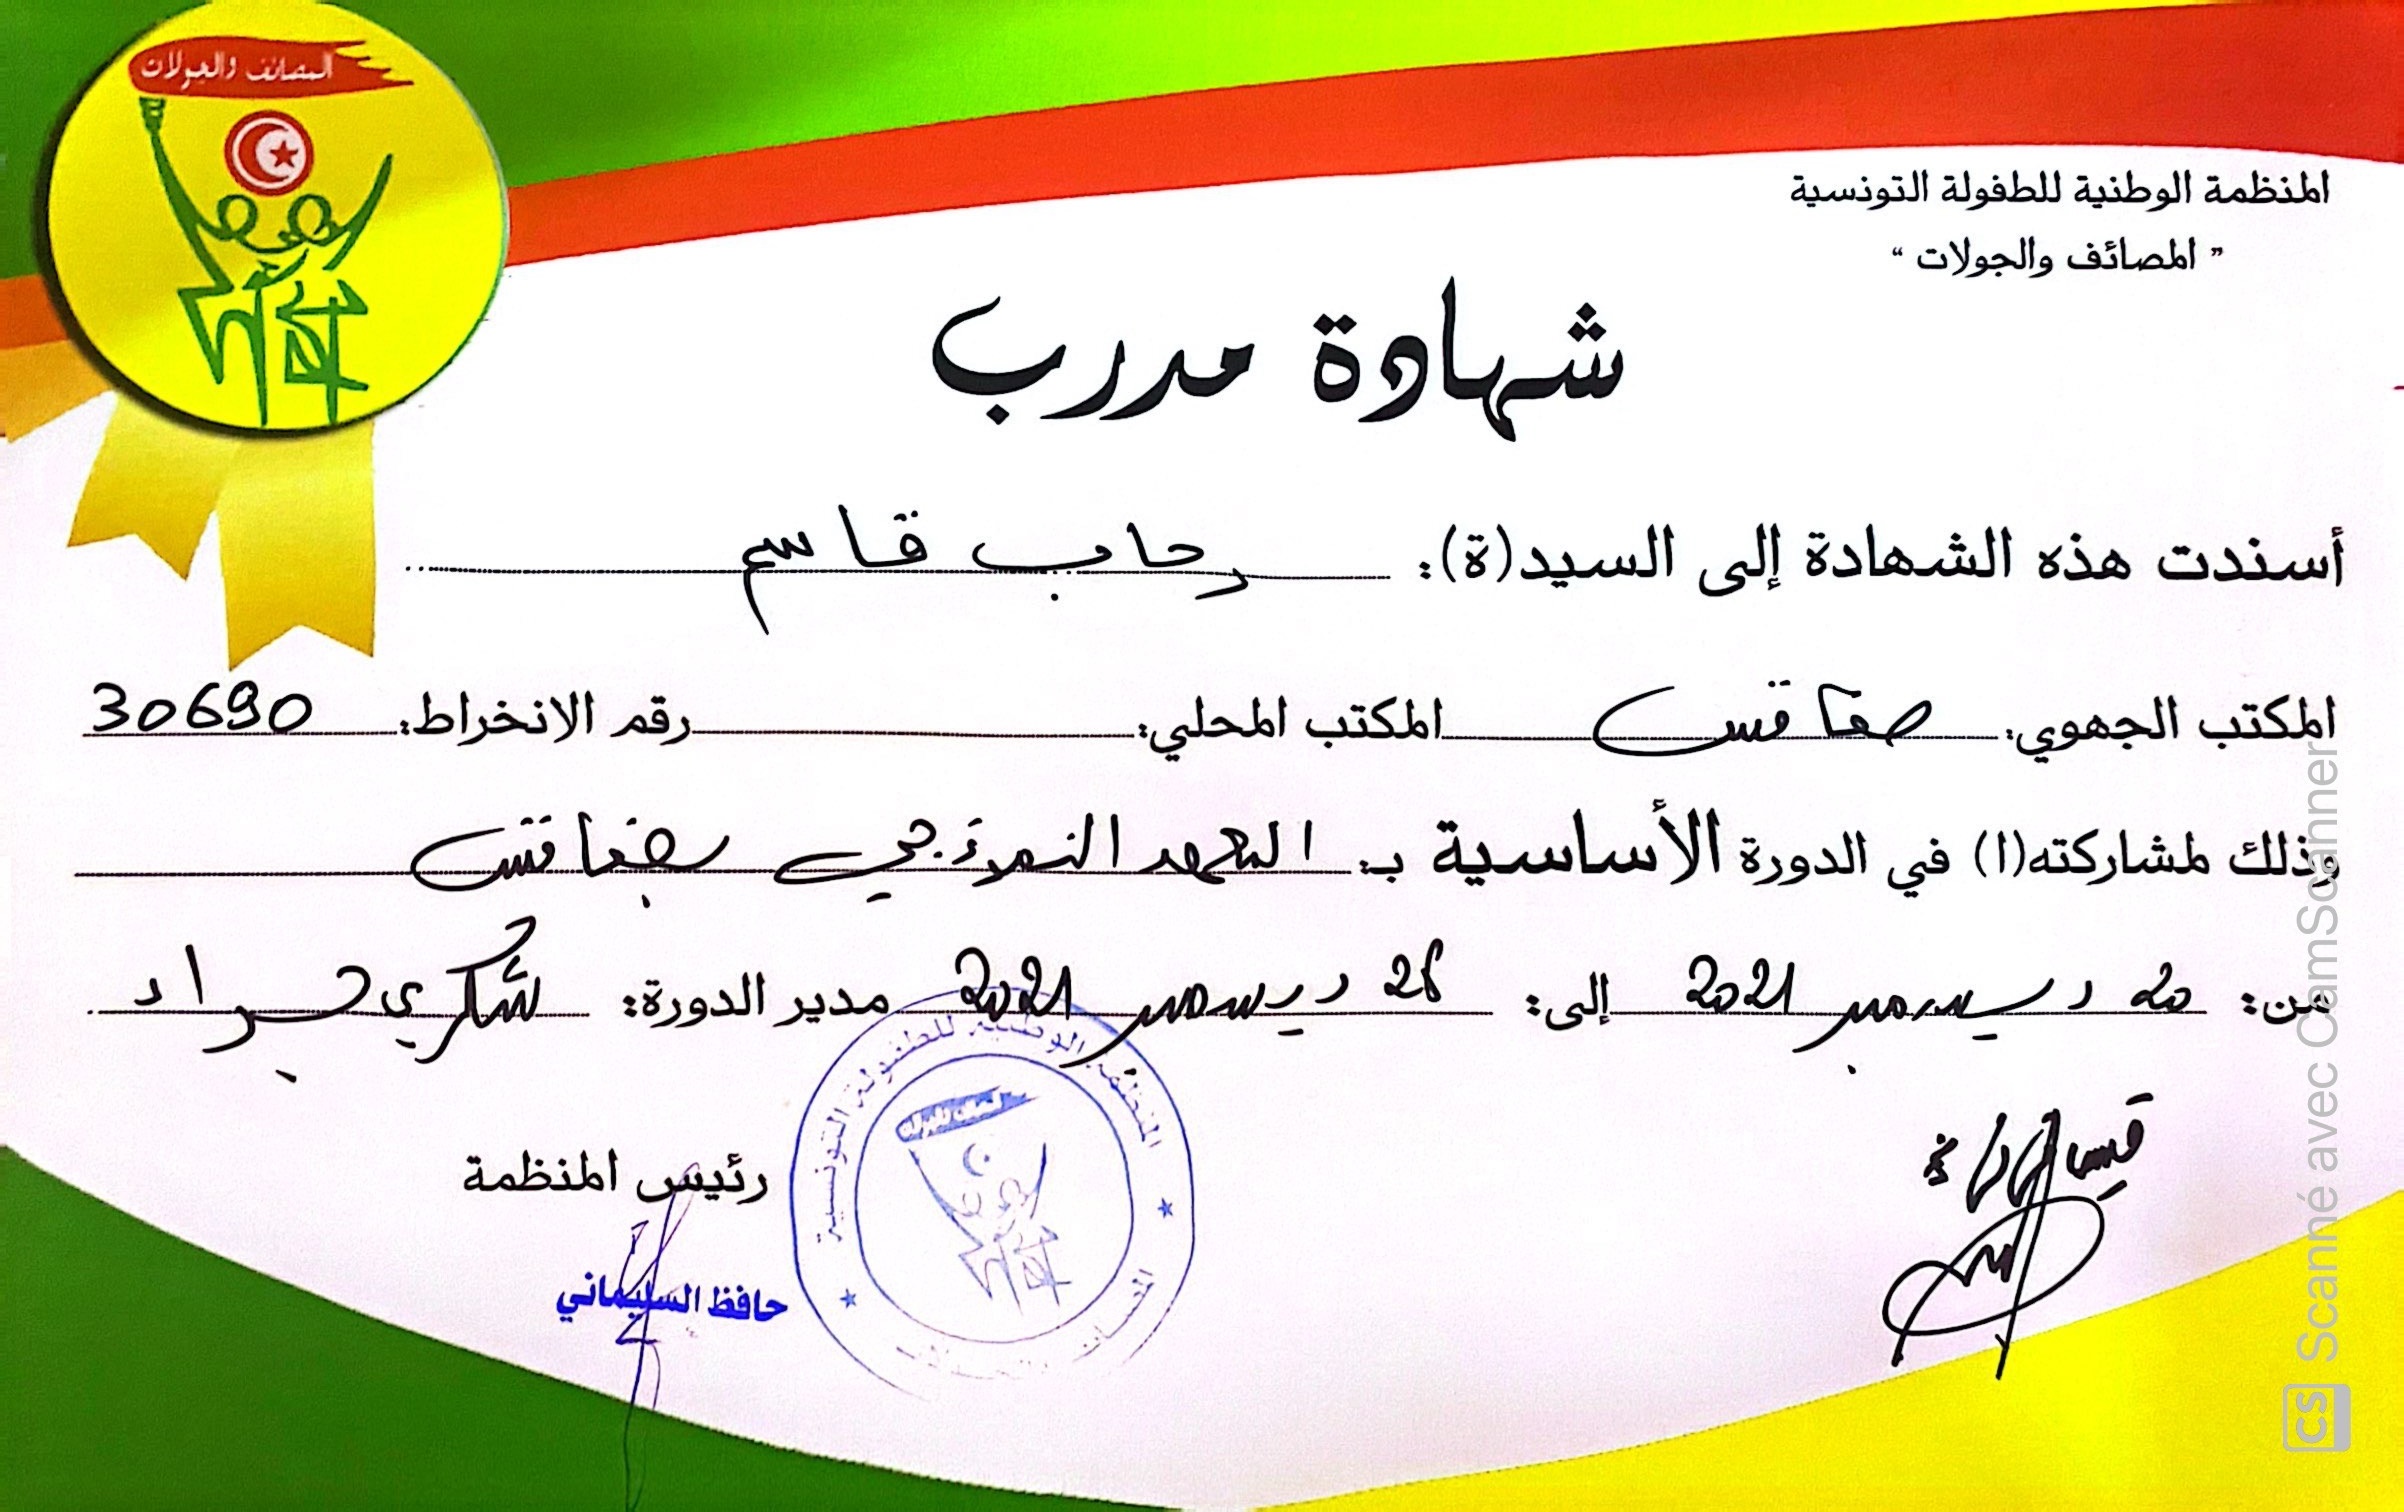 المصائف والجولات
المنظمة الوطنية للطفولة التونسية
" المصائف والجولات "
شهادة مدرب
أسندت هذه الشهادة إلى السيد(ة): رحاب قاسم
المكتب الجهوي: صفاقس المكتب المحلي: رقم الانخراط: 30690
وذلك لمشاركته(ا) في الدورة الأساسية بـ: المعهد النموذجي بصفاقس
من: 20 ديسمبر 2021 إلى: 26 ديسمبر 2021 مدير الدورة: شكري جراد
المنظمة الوطنية للطفولة التونسية
رئيس المنظمة
حافظ السليماني
قيس
CS Scanné avec CamScanner